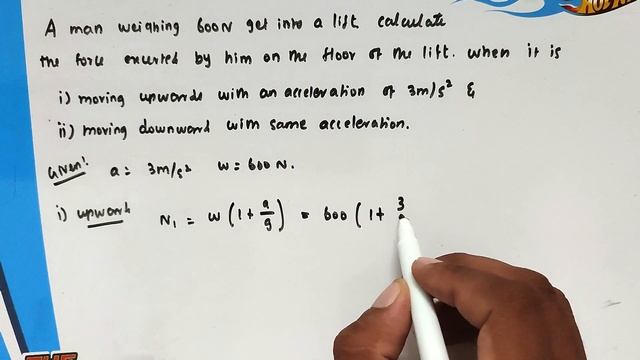 A man weighing 600N get into a lift calculate
the force exerted by him on the floor of the lift. when it is
i) moving upwards with an acceleration of 3m/s² &
ii) moving downward with same acceleration.
Given: a = 3m/s² w = 600 N.
i) upward N₁ = w (1 + a/g) = 600 (1 + 3
HOT